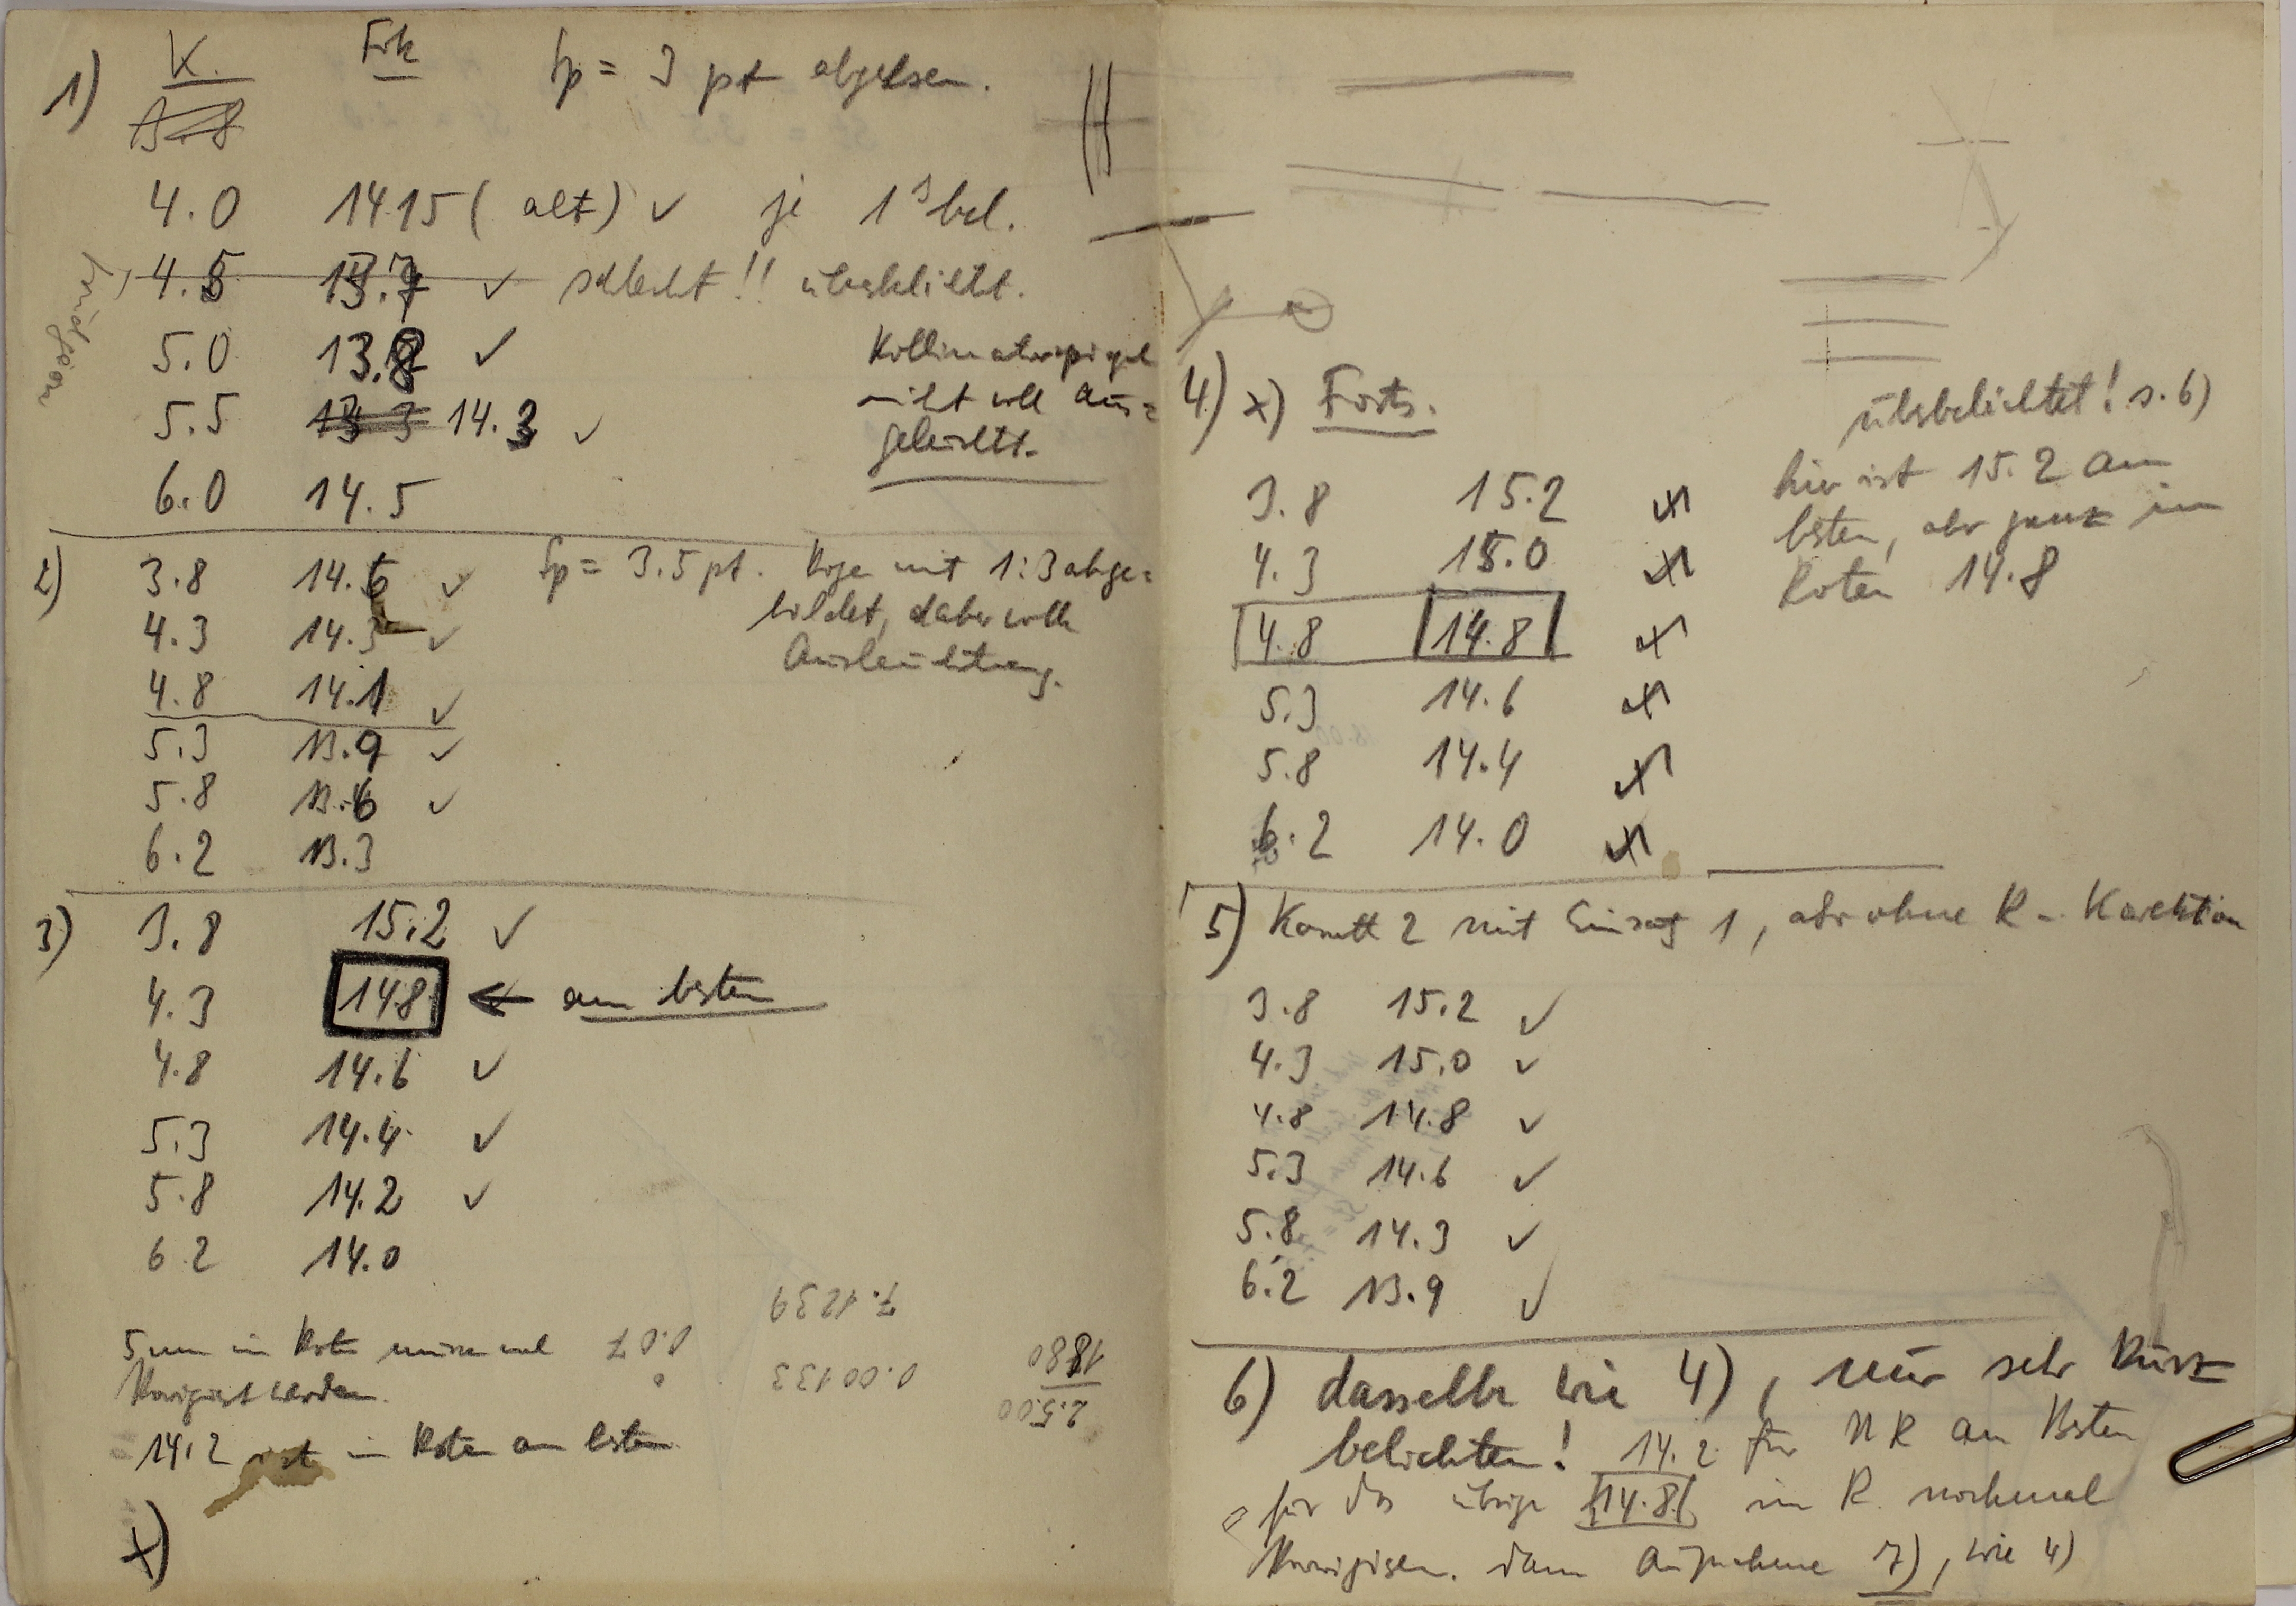 1) K. Fok Sp = 3 pt abgelesen.
4.0 14.15 (alt) ✓ je 1ˢ bel.
4.5 13.7 ✓ schlecht!! überbelicht.
5.0 13.8 ✓ Kollimatorspiegel
nicht voll aus=
geleuchtet.
5.5 13.3 14.3 ✓
6.0 14.5
2) 3.8 14.6 ✓ Sp = 3.5 pt. mit 1:3 abge=
bildet, daher volle
Ausleuchtung.
4.3 14.3 ✓
4.8 14.1 ✓
5.3 13.9 ✓
5.8 13.6 ✓
6.2 13.3
3) 3.8 15.2 ✓
4.3 14.8 ← am besten
4.8 14.6 ✓
5.3 14.4 ✓
5.8 14.2 ✓
6.2 14.0
7.1239
0.07
0.00133
1880
2.500
im Roten
korrigiert werden.
14.2 ist im Roten am besten
x)
4) x) Forts.
überbelichtet! s. 6)
hier ist 15.2 am
besten, aber ganz im
Roten 14.8
3.8 15.2
4.3 15.0
4.8 14.8
5.3 14.6
5.8 14.4
6.2 14.0
5) Komett 2 mit Einsatz 1, aber ohne R-Korrektion
3.8 15.2 ✓
4.3 15.0 ✓
4.8 14.8 ✓
5.3 14.6 ✓
5.8 14.3 ✓
6.2 13.9 ✓
6) dasselbe wie 4), nur sehr kurz
belichten! 14.2 für UR am Besten
für das übrige 14.8 im R. nochmal
korrigieren. dann Aufnahme 7), wie 4)